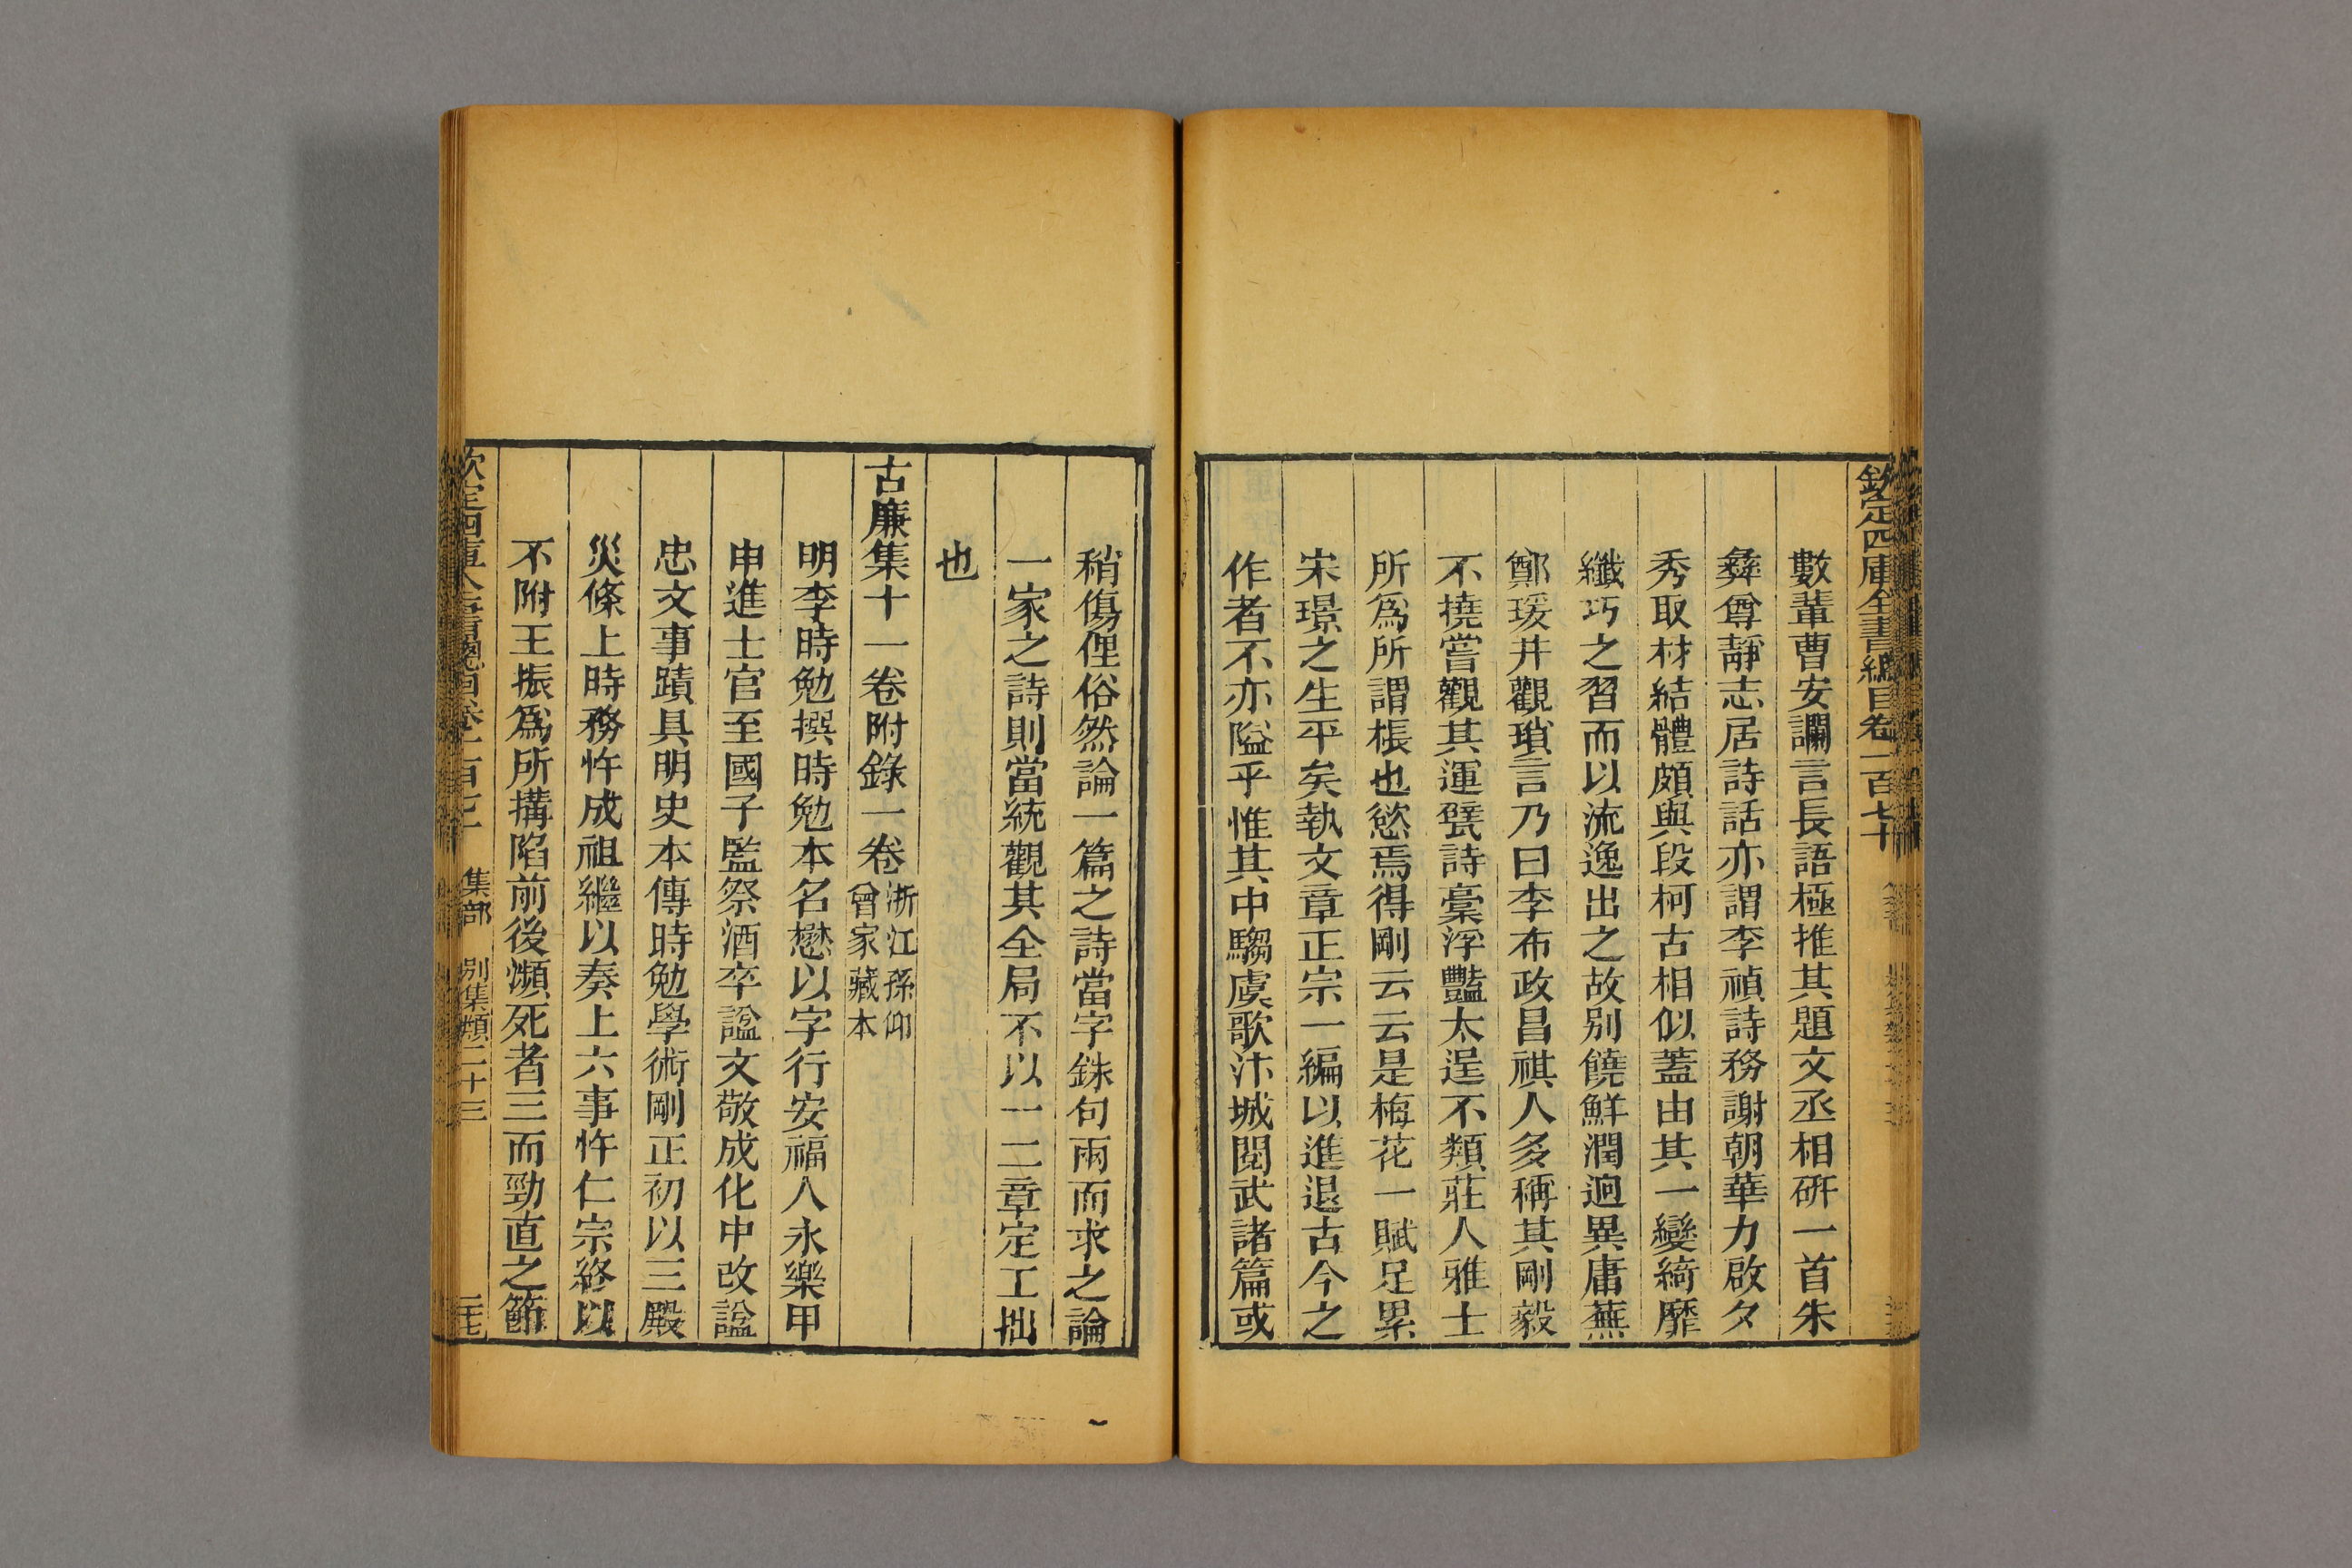 欽定四庫全書總目卷一百七十
數輩曹安讕言長語極推其題文丞相硏一首朱
彝尊靜志居詩話亦謂李禎詩務謝朝華力啟夕
秀取材結體頗與段柯古相似蓋由其一變綺靡
纖巧之習而以流逸出之故别饒鮮潤迥異庸蕪
鄭瑗井觀瑣言乃曰李布政昌祺人多稱其剛毅
不撓嘗觀其運甓詩稾浮豔太逞不類莊人雅士
所爲所謂棖也慾焉得剛云云是梅花一賦足累
宋璟之生平矣執文章正宗一編以進退古今之
作者不亦隘乎惟其中騶虞歌汴城閱武諸篇或
稍傷俚俗然論一篇之詩當字銖句兩而求之論
一家之詩則當統觀其全局不以一二章定工拙
也
古廉集十一卷附錄一卷浙江孫仰
曾家藏本
明李時勉撰時勉本名懋以字行安福人永樂甲
申進士官至國子監祭酒卒諡文敬成化中改諡
忠文事蹟具明史本傳時勉學術剛正初以三殿
災條上時務忤成祖繼以奏上六事忤仁宗終以
不附王振爲所搆陷前後瀕死者三而勁直之節
欽定四庫全書總目卷一百七十 集部 別集類二十三 二十七